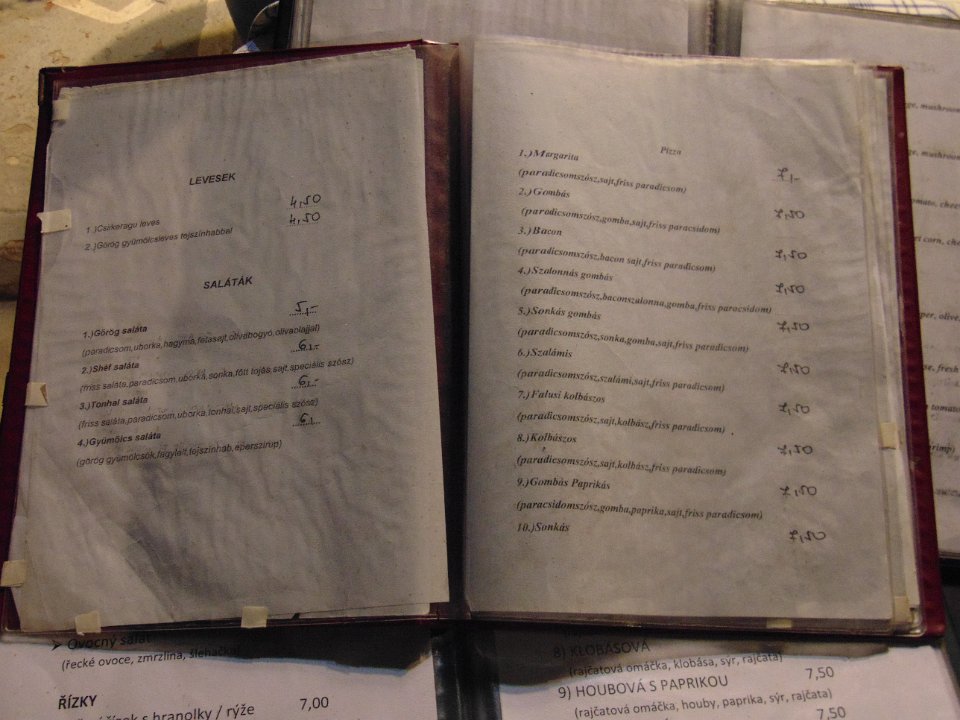 LEVESEK
1.)Csirkeragu leves 4,50
2.)Görög gyümölcsleves tejszínhabbal 4,50
SALÁTÁK
1.)Görög saláta 5,-
(paradicsom,uborka,hagyma,fetasajt,olivabogyó,olivaolajjal)
2.)Shéf saláta 6,-
(friss saláta,paradicsom,uborka,sonka,főtt tojás,sajt,speciális szósz)
3.)Tonhal saláta 6,-
(friss saláta,paradicsom,uborka,tonhal,sajt,speciális szósz)
4.)Gyümölcs saláta 6,-
(görög gyümölcsök,fagylalt,tejszínhab,eperszirup)
Pizza
1.)Margarita 7,-
(paradicsomszósz,sajt,friss paradicsom)
2.)Gombás 7,50
(parodicsomszósz,gomba,sajt,friss paracsidom)
3.)Bacon 7,50
(paradicsomszósz,bacon sajt,friss paradicsom)
4.)Szalonnás gombás 7,50
(paradicsomszósz,baconszalonna,gomba,friss paracsidom)
5.)Sonkás gombás 7,50
(paradicsomszósz,sonka,gomba,sajt,friss paradicsom)
6.)Szalámis 7,50
(paradicsomszósz,szalámi,sajt,friss paradicsom)
7.)Falusi kolbászos 7,50
(paradicsomszósz,sajt,kolbász,friss paradicsom)
8.)Kolbászos 7,50
(paradicsomszósz,sajt,kolbász,friss paradicsom)
9.)Gombás Paprikás 7,50
(paracsidomszósz,gomba,paprika,sajt,friss paradicsom)
10.)Sonkás 7,50
➤ Ovocný salát
(řecké ovoce, zmrzlina, šlehačka)
ŘÍZKY 7,00
řízek s hranolky / rýže
8) KLOBÁSOVÁ
(rajčatová omáčka, klobása, sýr, rajčata)
9) HOUBOVÁ S PAPRIKOU 7,50
(rajčatová omáčka, houby, paprika, sýr, rajčata)
7,50
mushroom
mushroom
fresh
tomato